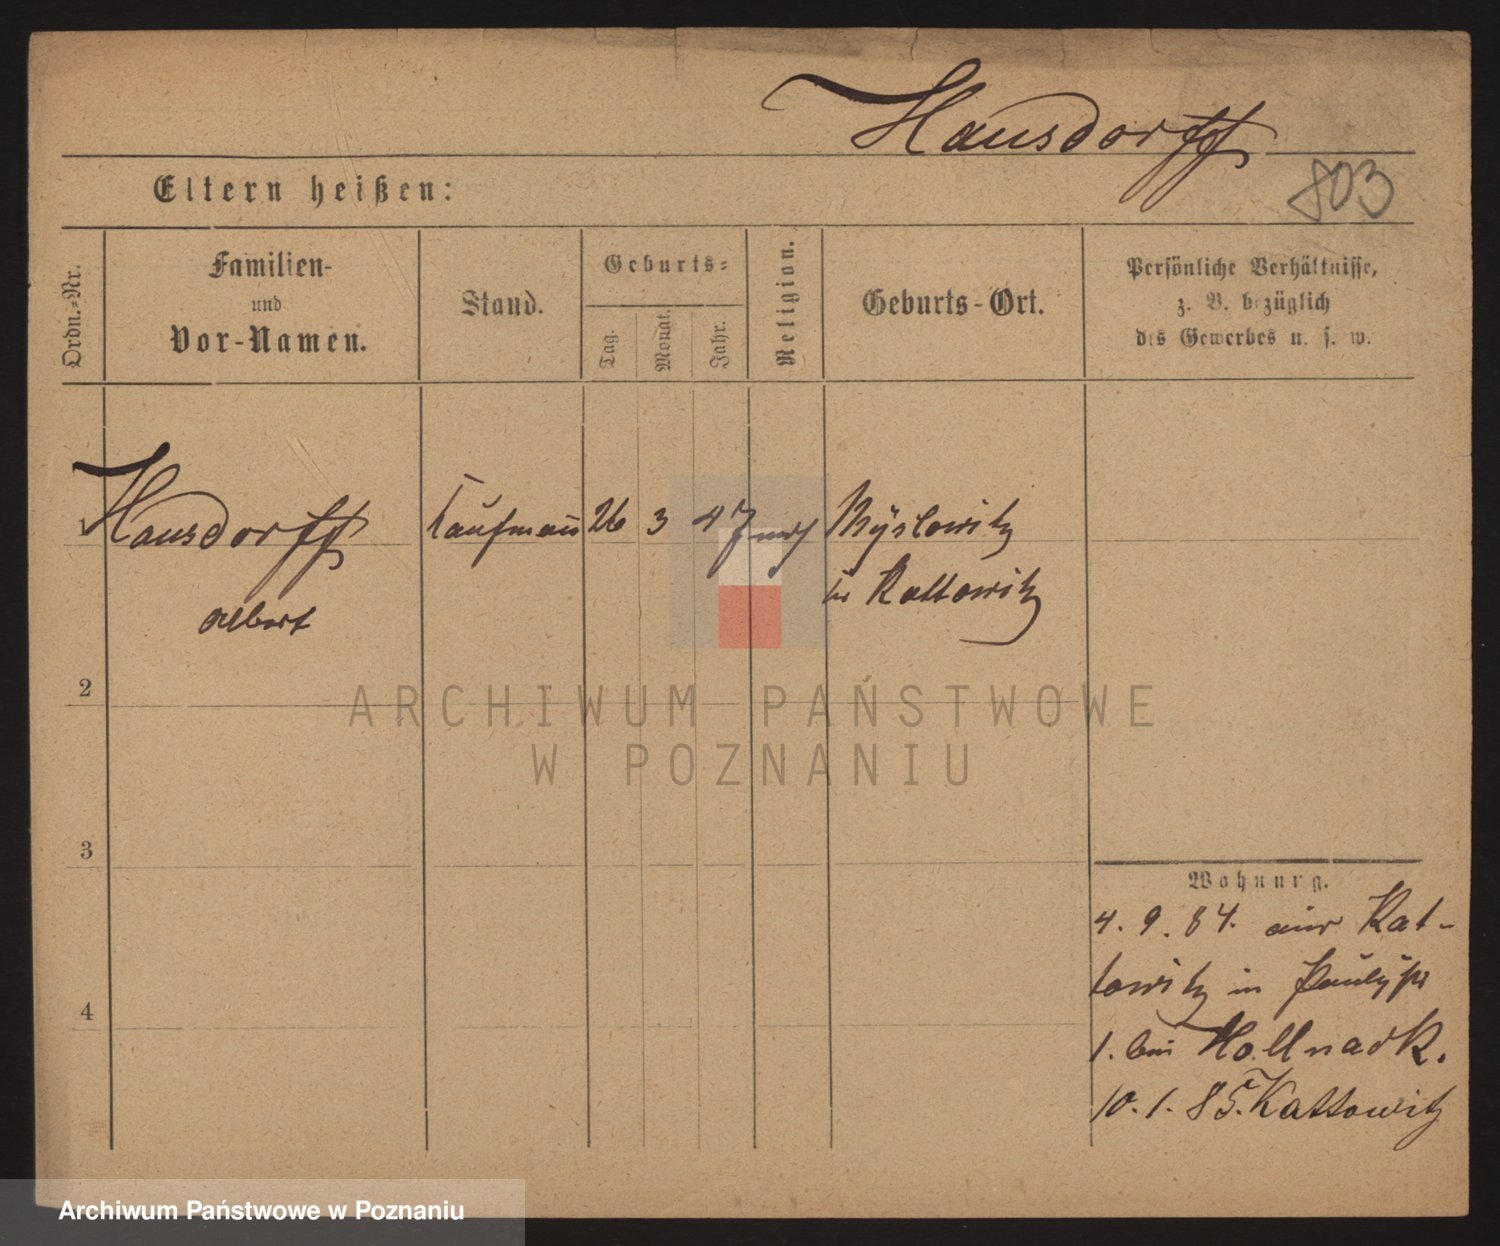 Hausdorff
803
Eltern heißen:
Ordn.=Nr.
Familien-
und
Vor-Namen.
Stand.
Geburts=
Tag.
Monat.
Jahr.
Religion.
Geburts-Ort.
Persönliche Verhältnisse,
z. B. bezüglich
des Gewerbes u. s. w.
1
Hausdorff
Albert
Kaufmann
26
3
47
Myslowitz
Kattowitz
2
3
4
Wohnung.
4. 9. 84. aus Kat-
towitz in
1. bei
10. 1. 85. Kattowitz
ARCHIWUM PAŃSTWOWE
W POZNANIU
Archiwum Państwowe w Poznaniu